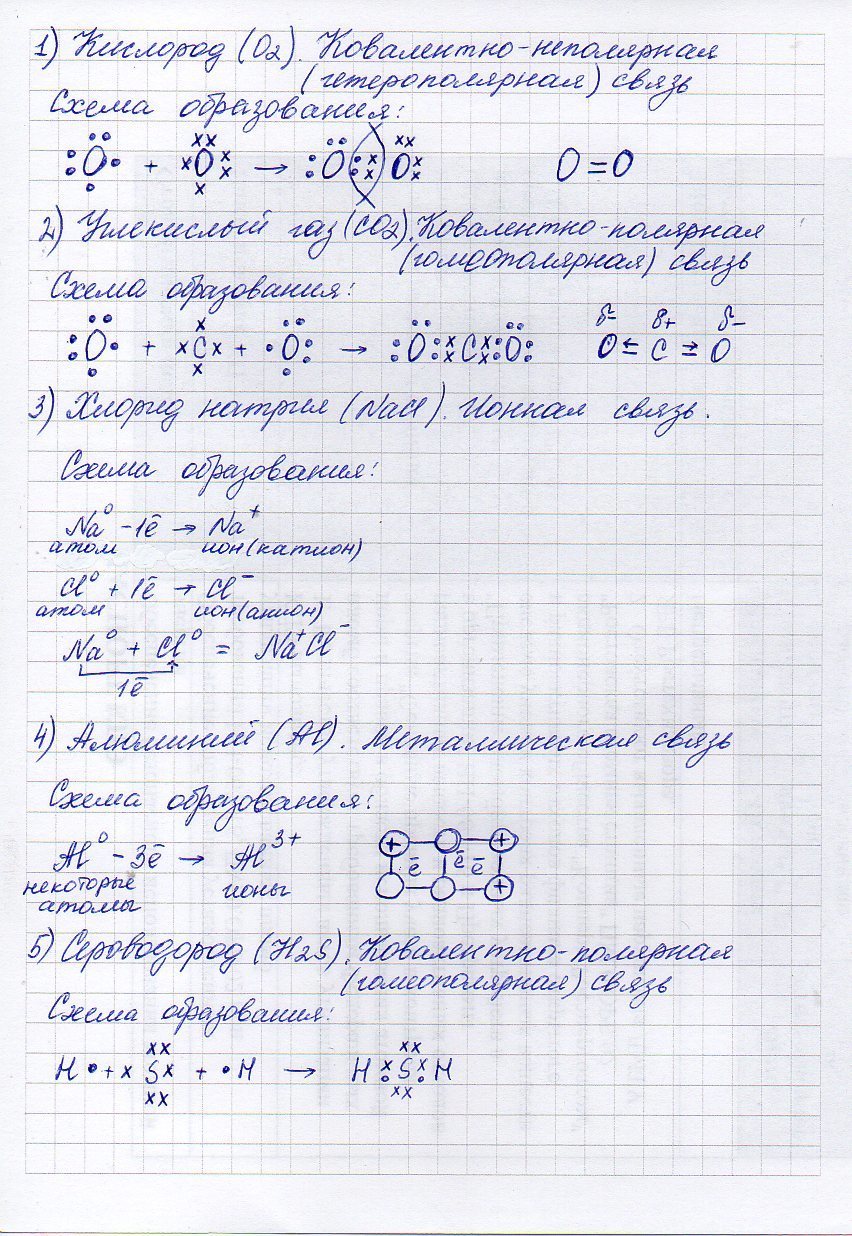 1) Кислород (O2). Ковалентно-неполярная
(гетерополярная) связь
Схема образования:
O + O → O O O=O
2) Углекислый газ (CO2). Ковалентно-полярная
(гомеополярная) связь
Схема образования:
δ- δ+ δ-
O + C + O → O C O O ⇐ C ⇒ O
3) Хлорид натрия (NaCl). Ионная связь.
Схема образования:
Na⁰ - 1ē → Na⁺
атом ион (катион)
Cl⁰ + 1ē → Cl⁻
атом ион (анион)
Na⁰ + Cl⁰ = Na⁺Cl⁻
1ē
4) Алюминий (Al). Металлическая связь
Схема образования:
Al⁰ - 3ē → Al³⁺
+ +
ē ē ē
+
некоторые ионы
атомы
5) Сероводород (H2S). Ковалентно-полярная
(гомеополярная) связь
Схема образования:
H• + xSx + •H → H S H